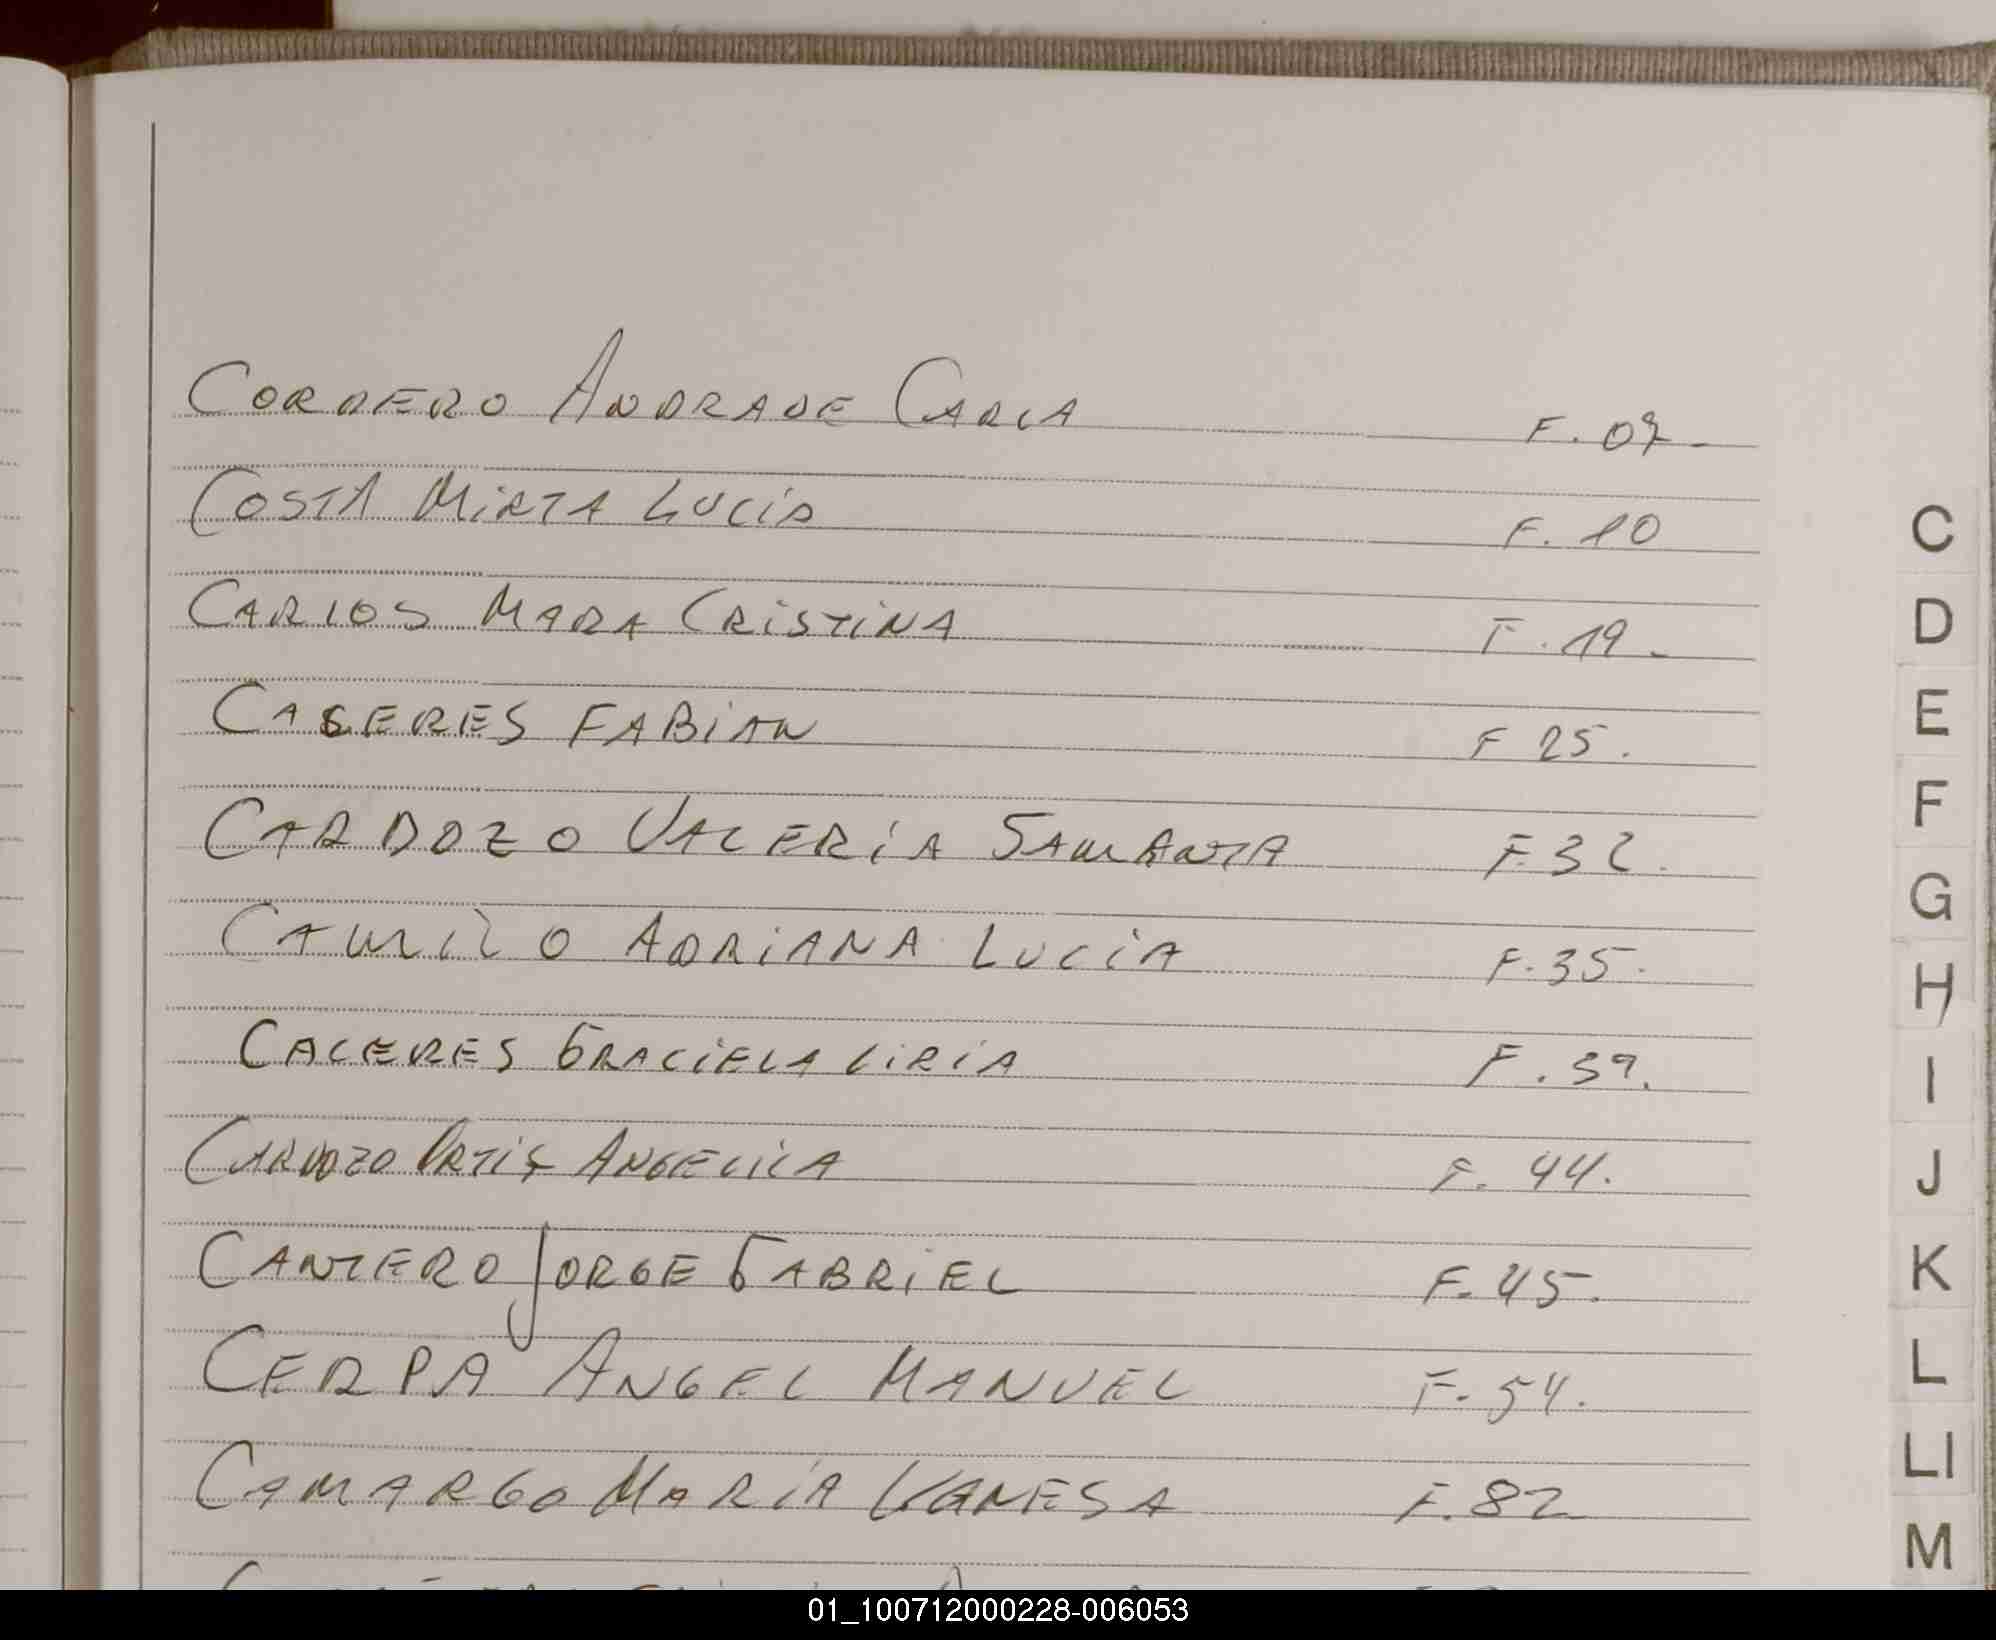 CORDERO ANDRADE CARLA F. 07-
COSTA MIRTA LUCIA F. 10
CARLOS MARA CRISTINA F. 19-
CACERES FABIAN F 25.
CARDOZO VALERIA SAMANTA F.32.
CAMILO ADRIANA LUCIA F.35.
CACERES GRACIELA LIRIA F.39.
CARDOZO ORTIS ANGELICA F. 44.
CANTERO JORGE GABRIEL F.45.
CERPA ANGEL MANUEL F.54.
CAMARGO MARIA VANESA F.82
C
D
E
F
G
H
I
J
K
L
Ll
M
01_100712000228-006053